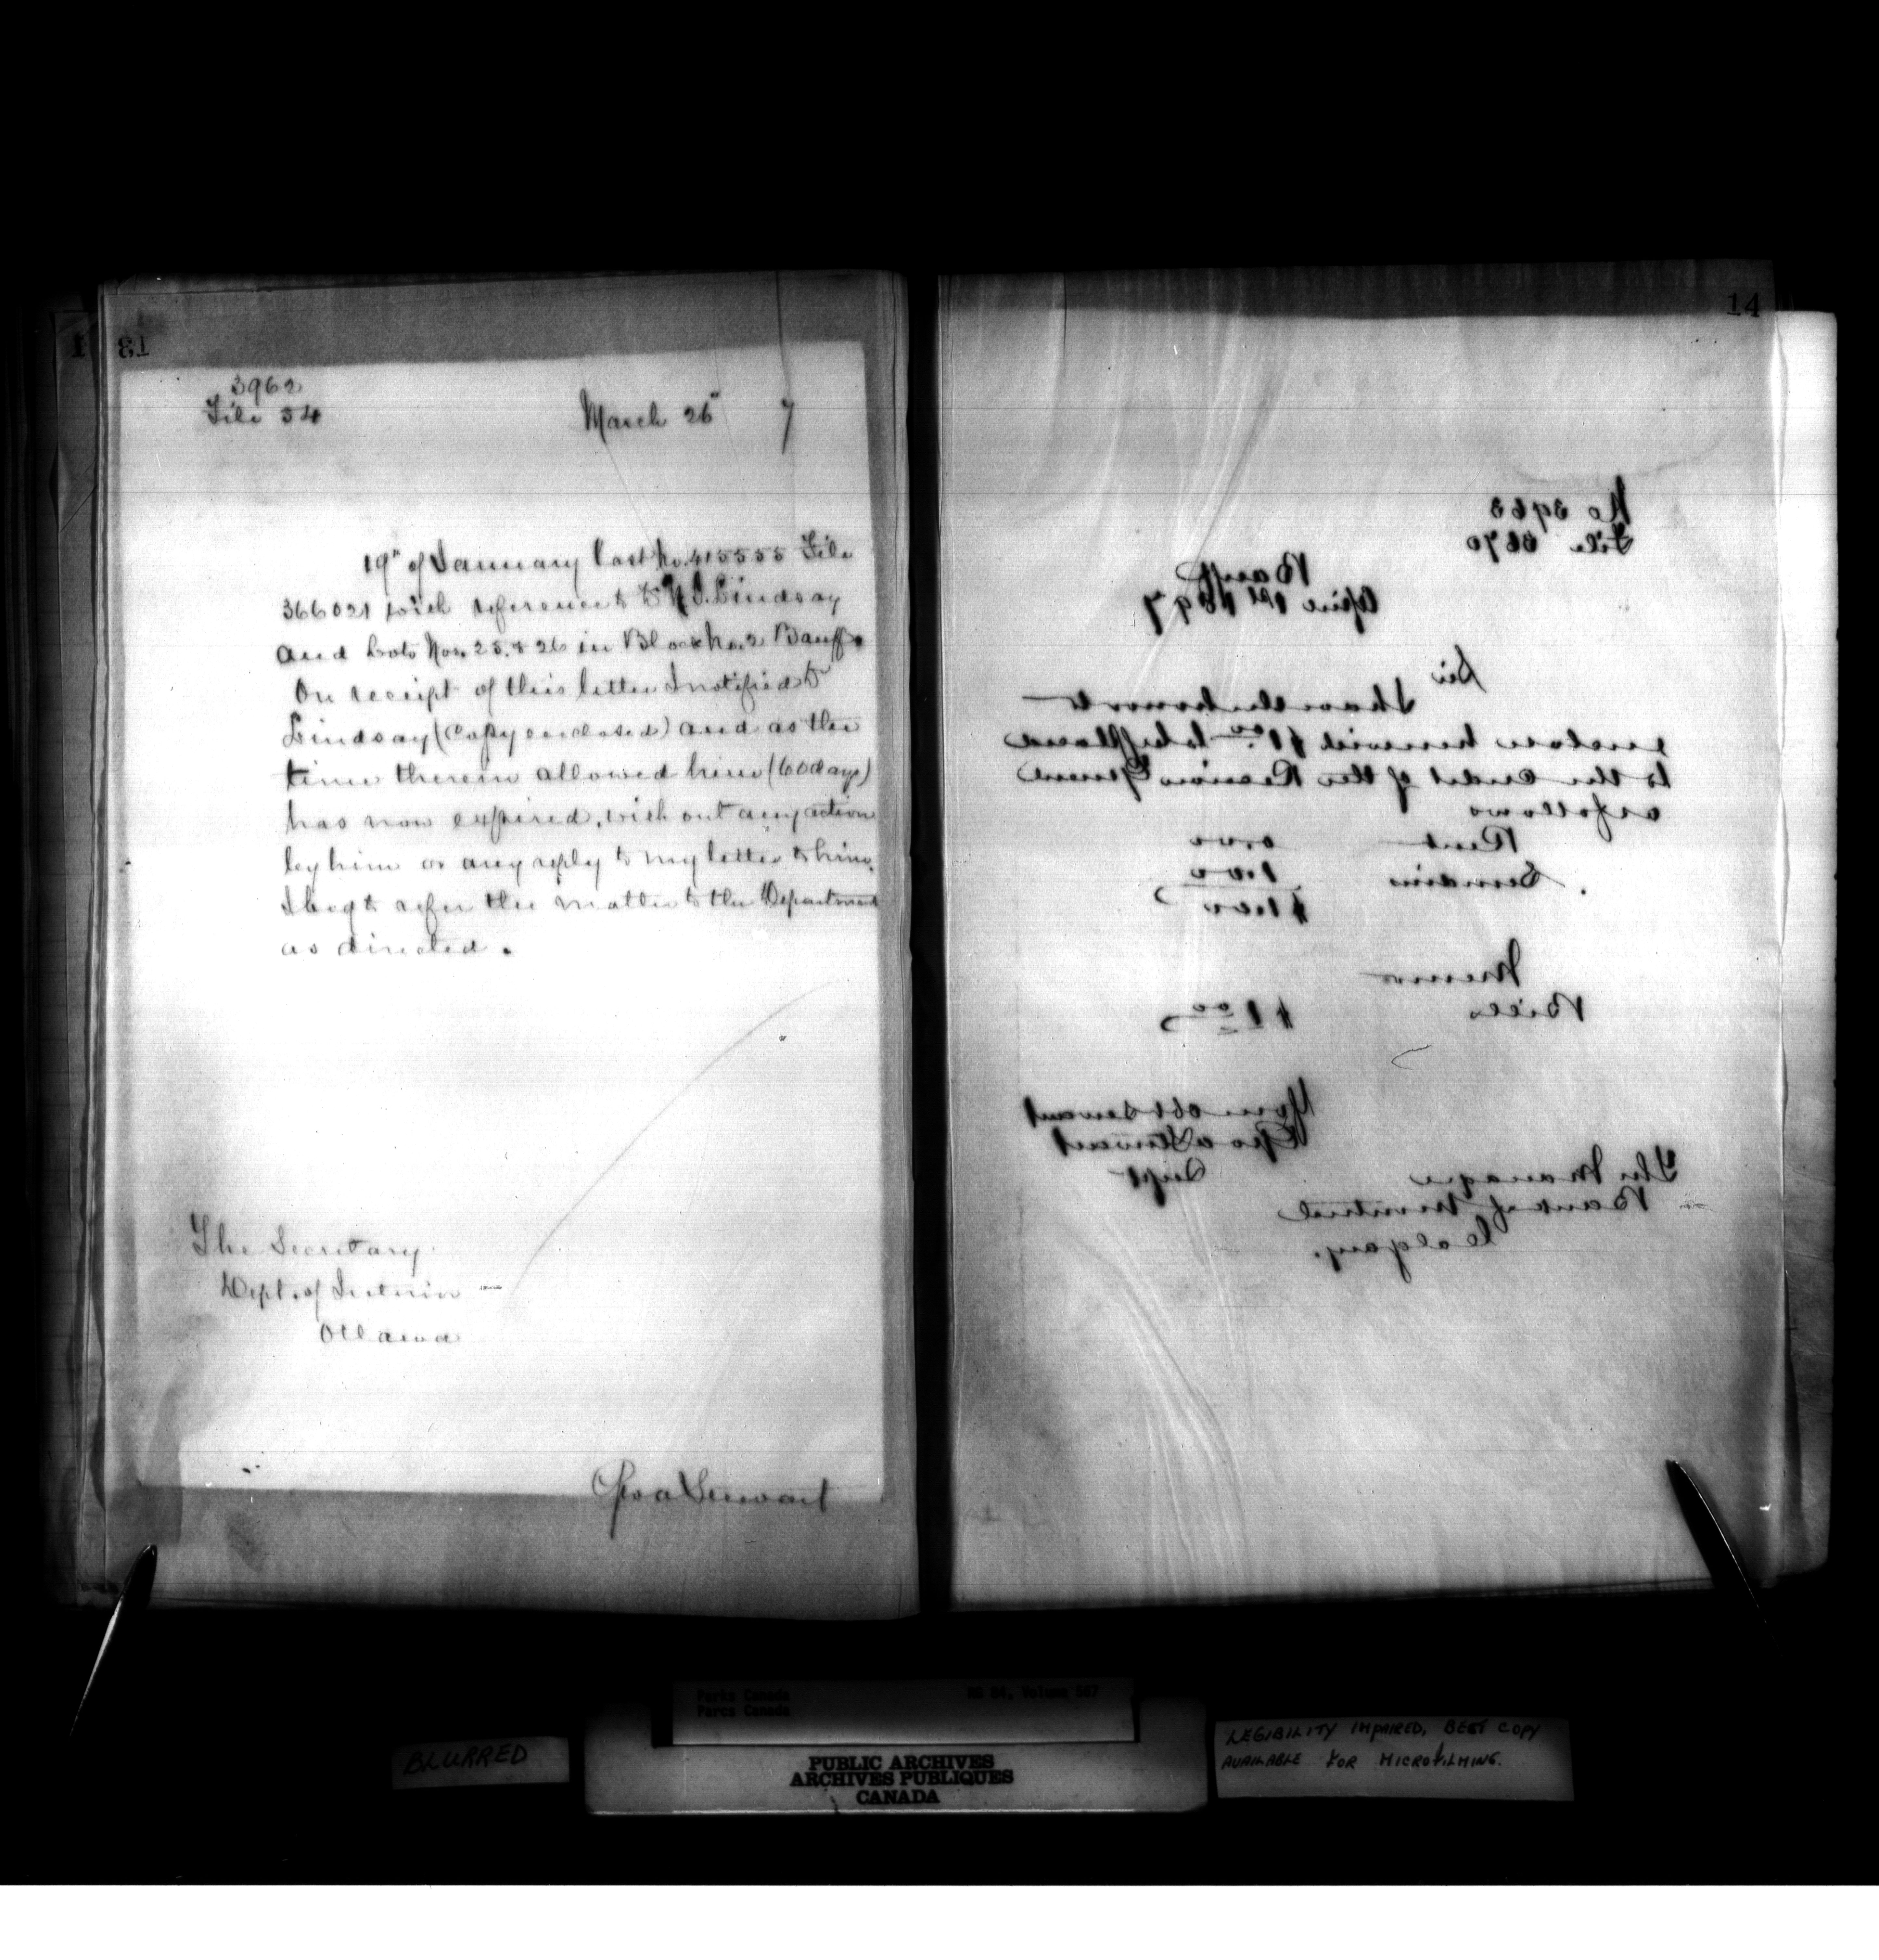 13
3962
File 34
March 26" 7
19" of January last No. 415555 File
366021 with reference to Lindsay
and Lots Nos. 25. & 26 in Block No. 2 Banff.
On receipt of this letter I notified
Lindsay (Copy enclosed) and as the
time therein allowed him (60 days)
has now expired, with out any action
by him or any reply to my letter to him.
I beg to refer the matter to the Department
as directed.
The Secretary
Dept. of Interior
Ottawa
Geo a Stewart
14
No 3963
File
Banff
April 1st 1897
Sir
I have the honour to
enclose herewith $1.00 to be placed
to the credit of the Receiver General
as follows
Rent 0.00
Sundries 1.00
$1.00
Memo
Bills $1.00
Your obt servant
Geo a Stewart
Supt
The Manager
Bank of Montreal
Calgary.
Parks Canada RG 84, Volume 567
Parcs Canada
BLURRED
PUBLIC ARCHIVES
ARCHIVES PUBLIQUES
CANADA
LEGIBILITY IMPAIRED, BEST COPY
AVAILABLE FOR MICROFILMING.